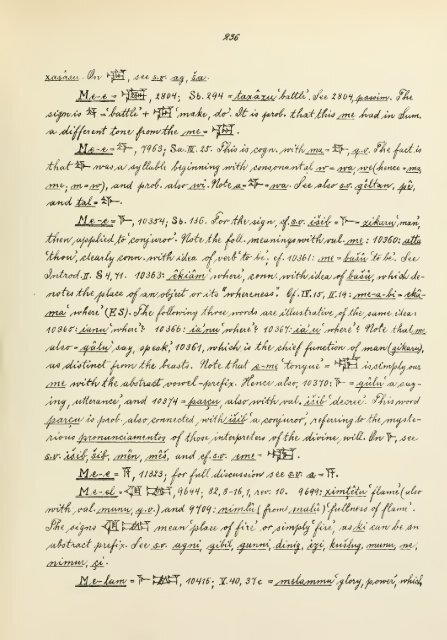 236
xarâru. On 𒀝, see s.v. ag, ša.
Me-e = , 2804; Sb. 294 = taxâzu 'battle'. See 2804, passim. The
sign is = 'battle' + 'make, do'. It is prob. that this me had in Sum.
a different tone from the me = .
Me-e = , 7963; Sa. IV. 25. This is cogn. with ma = , q.v. The fact is
that was a syllable beginning with consonantal w = wa, we (hence = ma,
me; m = w), and prob. also wi. Note a = = wa. See also s.v. geltan, pi,
and tal = .
Me-e = 𒈨, 10354; Sb. 136. For the sign, cf. s.v. išib = 𒈨 = zikaru 'man',
then, applied to 'conjuror'. Note the foll. meanings with val. me: 10360: atta
'thou', clearly conn. with idea of verb 'to be'; cf. 10361: me = bašû 'to be'. See
Introd. II. § 4, 71. 10363: êkiâm 'where', conn. with idea of bašû, which de-
notes the place of an object or its "whereness". Cf. IV. 15, II. 14: me-a-bi = êkâ-
ma 'where' (ES). The following three words are illustrative of the same idea:
10365: iânu 'where'? 10366: iâ'nu 'where'? 10367: iâ'u 'where'? Note that me
also = qâlu 'say, speak', 10361, which is the chief function of man (zikaru),
as distinct from the beasts. Note that e-me 'tongue' = is simply our
me with the abstract, vowel-prefix. Hence also, 10370: 𒈨 = qûlu 'a say-
ing, utterance', and 10374 = parçu, also with val. išib 'decree'. This word
parçu is prob. also connected with išib 'a conjuror', referring to the myste-
rious pronunciamentos of those interpreters of the divine will. On 𒈨, see
s.v. išib, šib, mên, mêš, and cf. s.v. eme = .
Me-e = 𒀀, 11323; for full discussion see s.v. a = 𒀀.
Me-el = , 9644, 82, 8-16, 1, rev. 10. 9649: ximtêtu 'flame' (also
with val. munu, q.v.) and 9704: nimlû (from malû) 'fullness of flame'.
The signs mean 'place of fire' or simply 'fire', as ki can be an
abstract prefix. See s.v. agni, gibil, gunni, dinig, izi, kušbug, munu, ne,
nimur, çi.
Me-lam = 𒈨 , 10416; V. 40, 37c = melammu 'glory, power', which